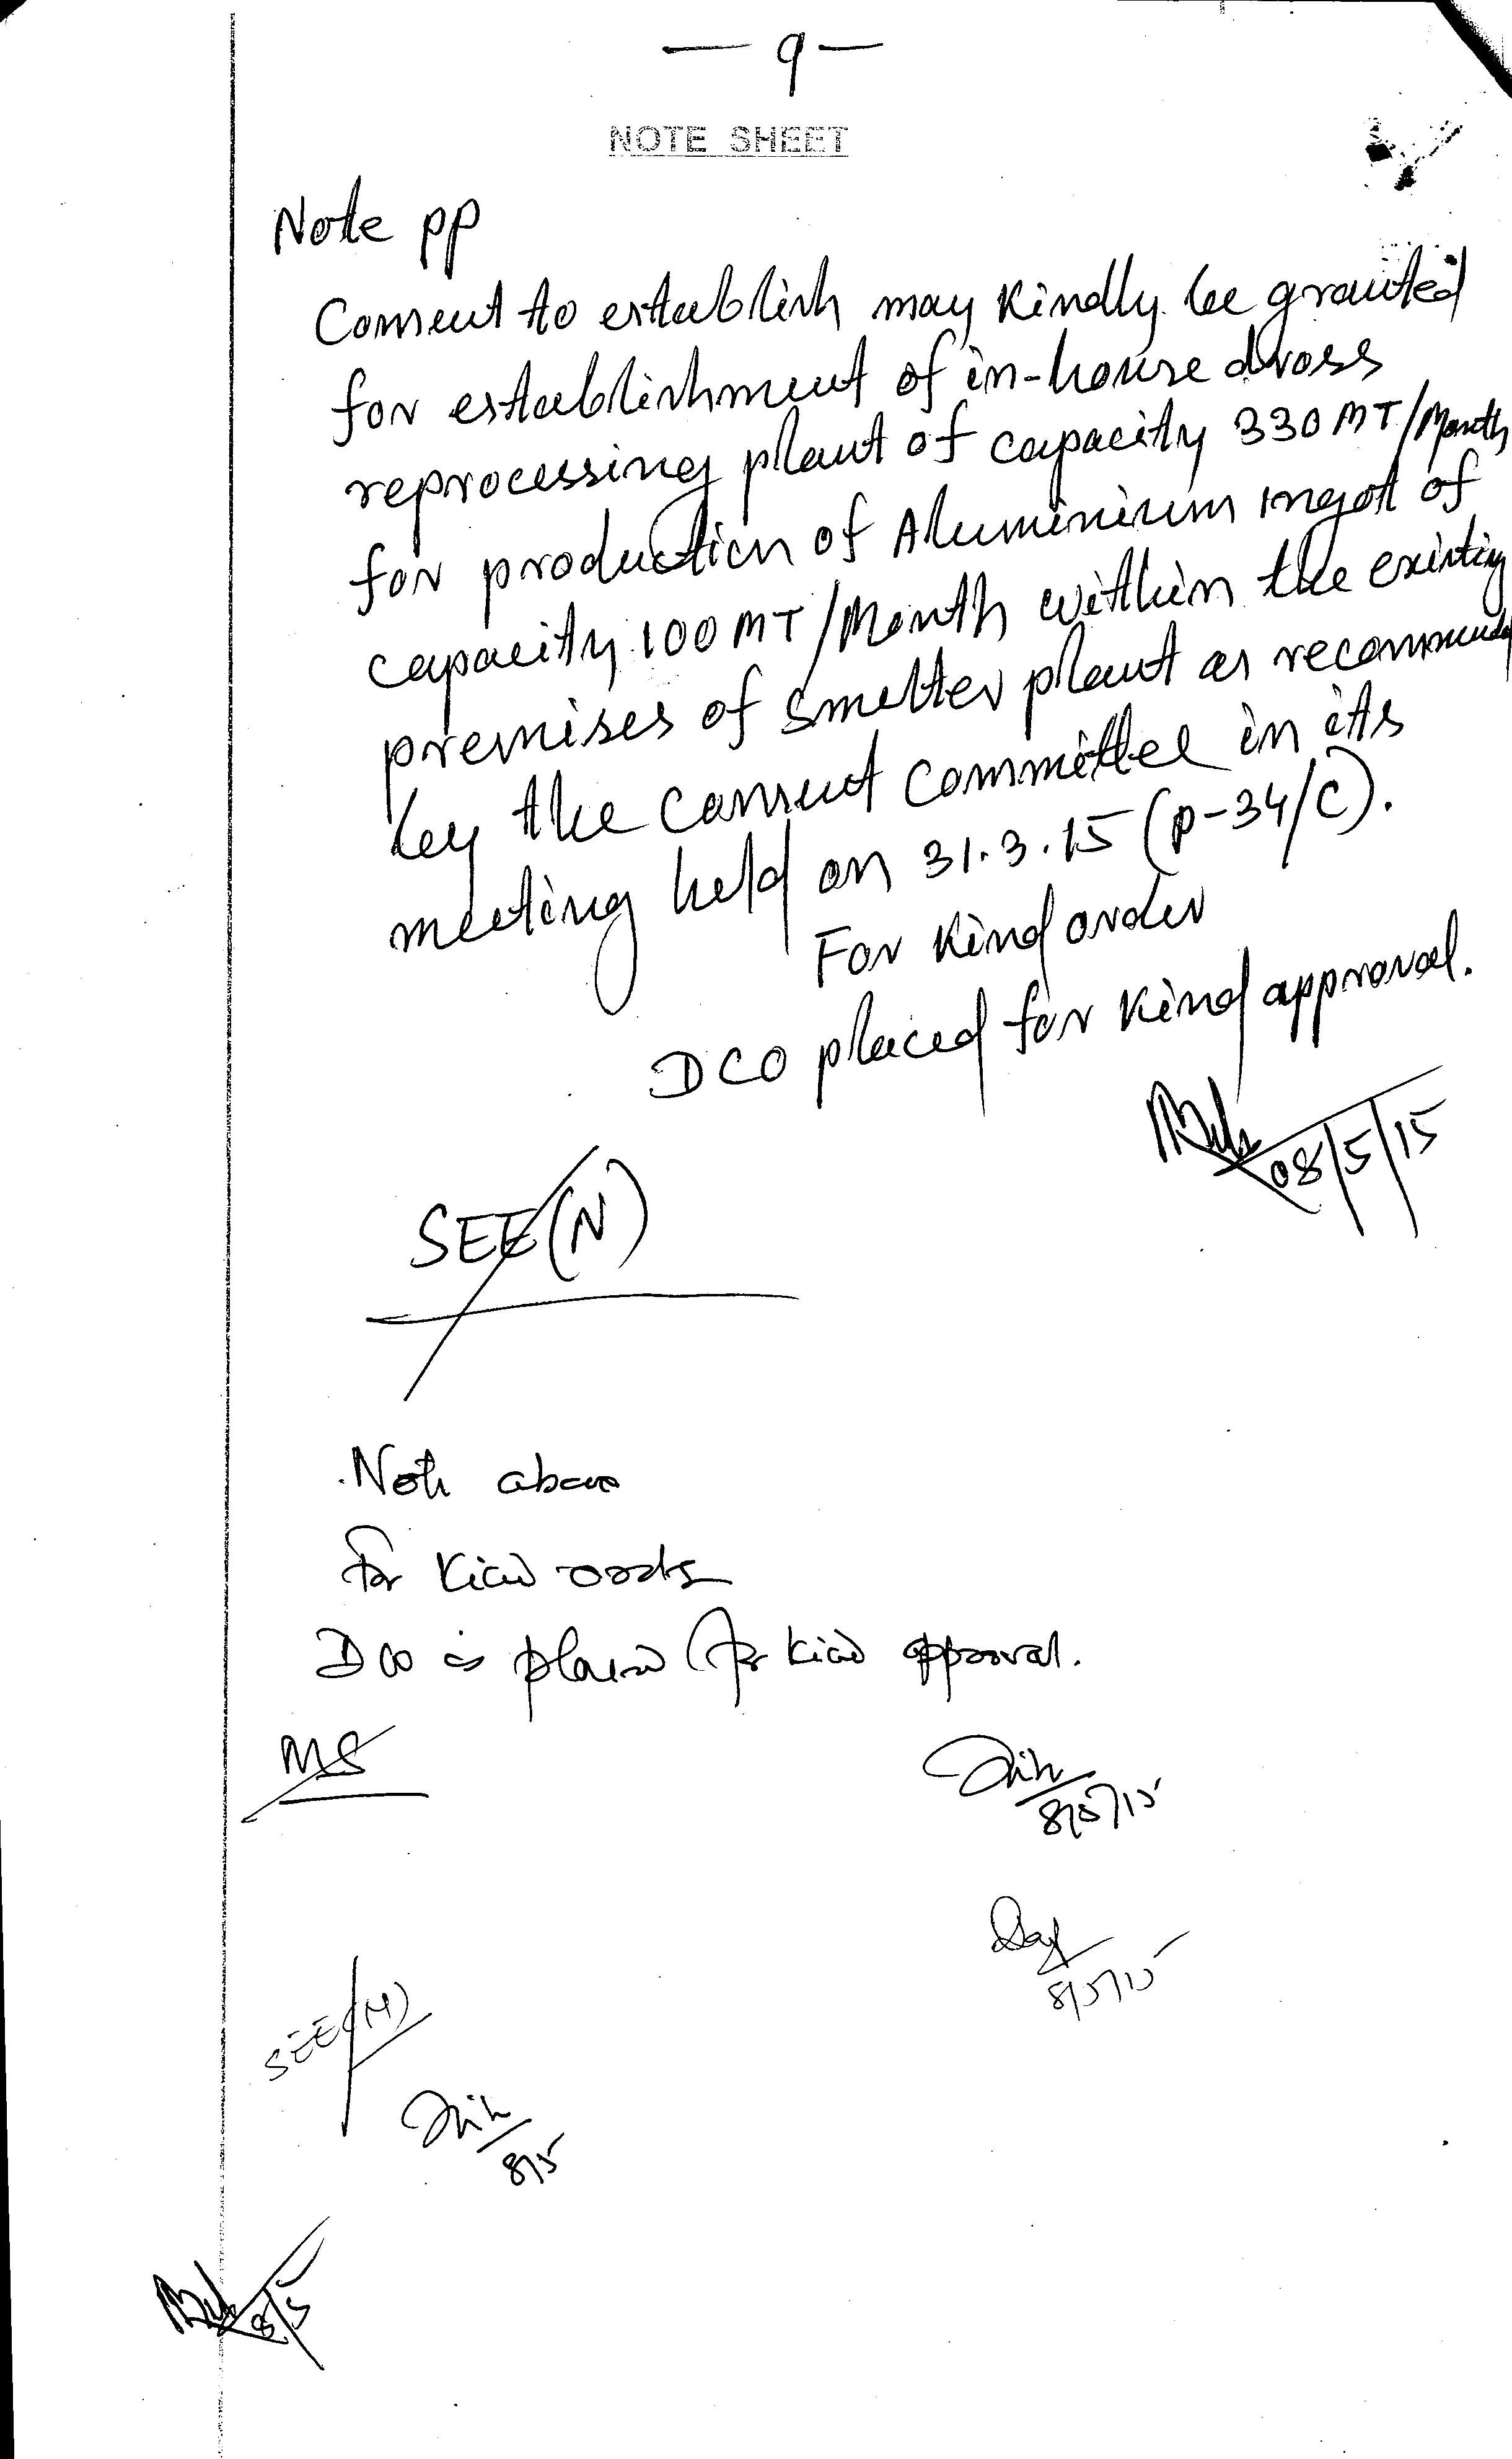 — 9 —
NOTE SHEET
Note pp
Consent to establish may kindly be granted
for establishment of in-house dross
reprocessing plant of capacity 330 MT/Month
for production of Aluminium ingot of
capacity 100 MT/Month within the existing
premises of smelter plant as recommended
by the consent committee in its
meeting held on 31.3.15 (p-34/C).
For kind order
DCO placed for kind approval.
08/5/15
SEE(N)
Note above
For kind order
DCO is placed for kind approval.
MS
8/5/15
8/5/15
SEE(N)
8/5
8/5